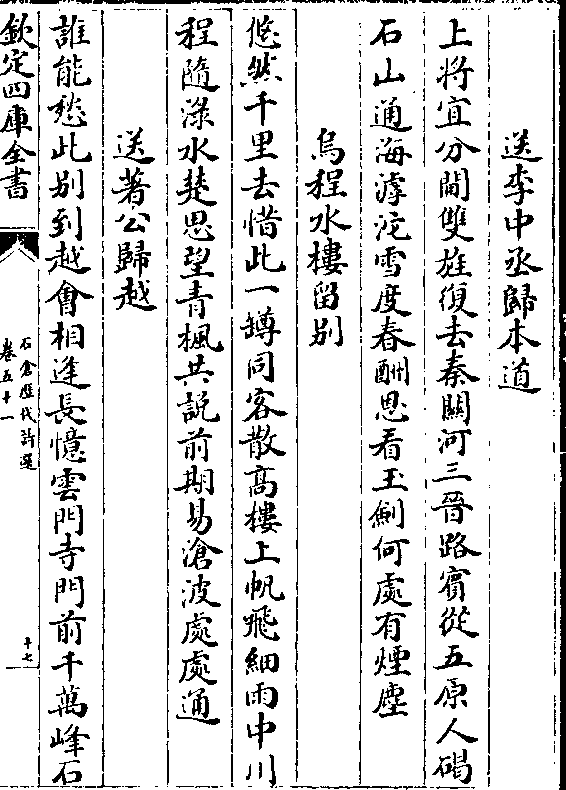 送李中丞歸本道
上將宜分閫雙旌復去秦關河三晉路賓從五原人碣
石山通海滹沱雪度春酬恩看玉劍何處有煙塵
烏程水樓留别
悠然千里去惜此一罇同客散髙樓上帆飛細雨中川
程隨淥水楚思望青楓共説前期易滄波處處通
送著公歸越
誰能愁此别到越㑹相逢長憶雲門寺門前千萬峰石
欽定四庫全書
石倉歴代詩選
卷五十一
十七